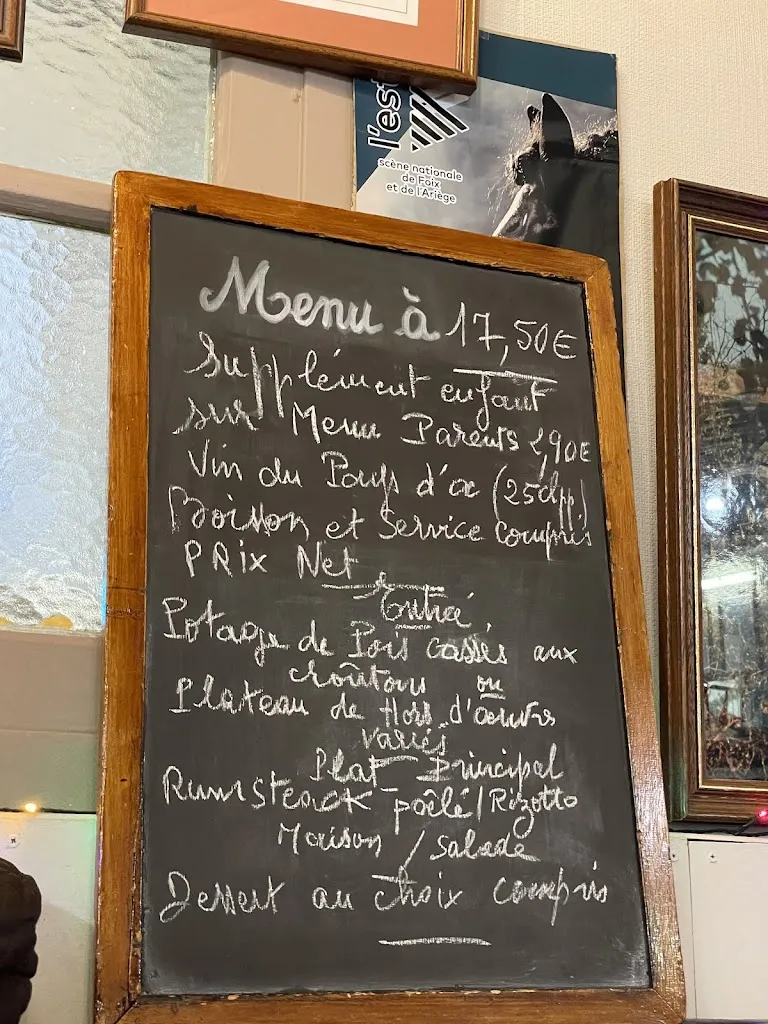 l'est
scène nationale
de Foix
et de l'Ariège
Menu à 17,50€
Supplément enfant
sur Menu Parents 2,90€
Vin du Pays d'oc (25clpp)
Boisson et Service Compris
PRix Net
Entrée
Potage de Pois cassés aux
croûtons ou
Plateau de Hors d'œuvres
variés
Plat Principal
Rumsteack poêlé/Rizotto
Maison / Salade
Dessert au choix compris